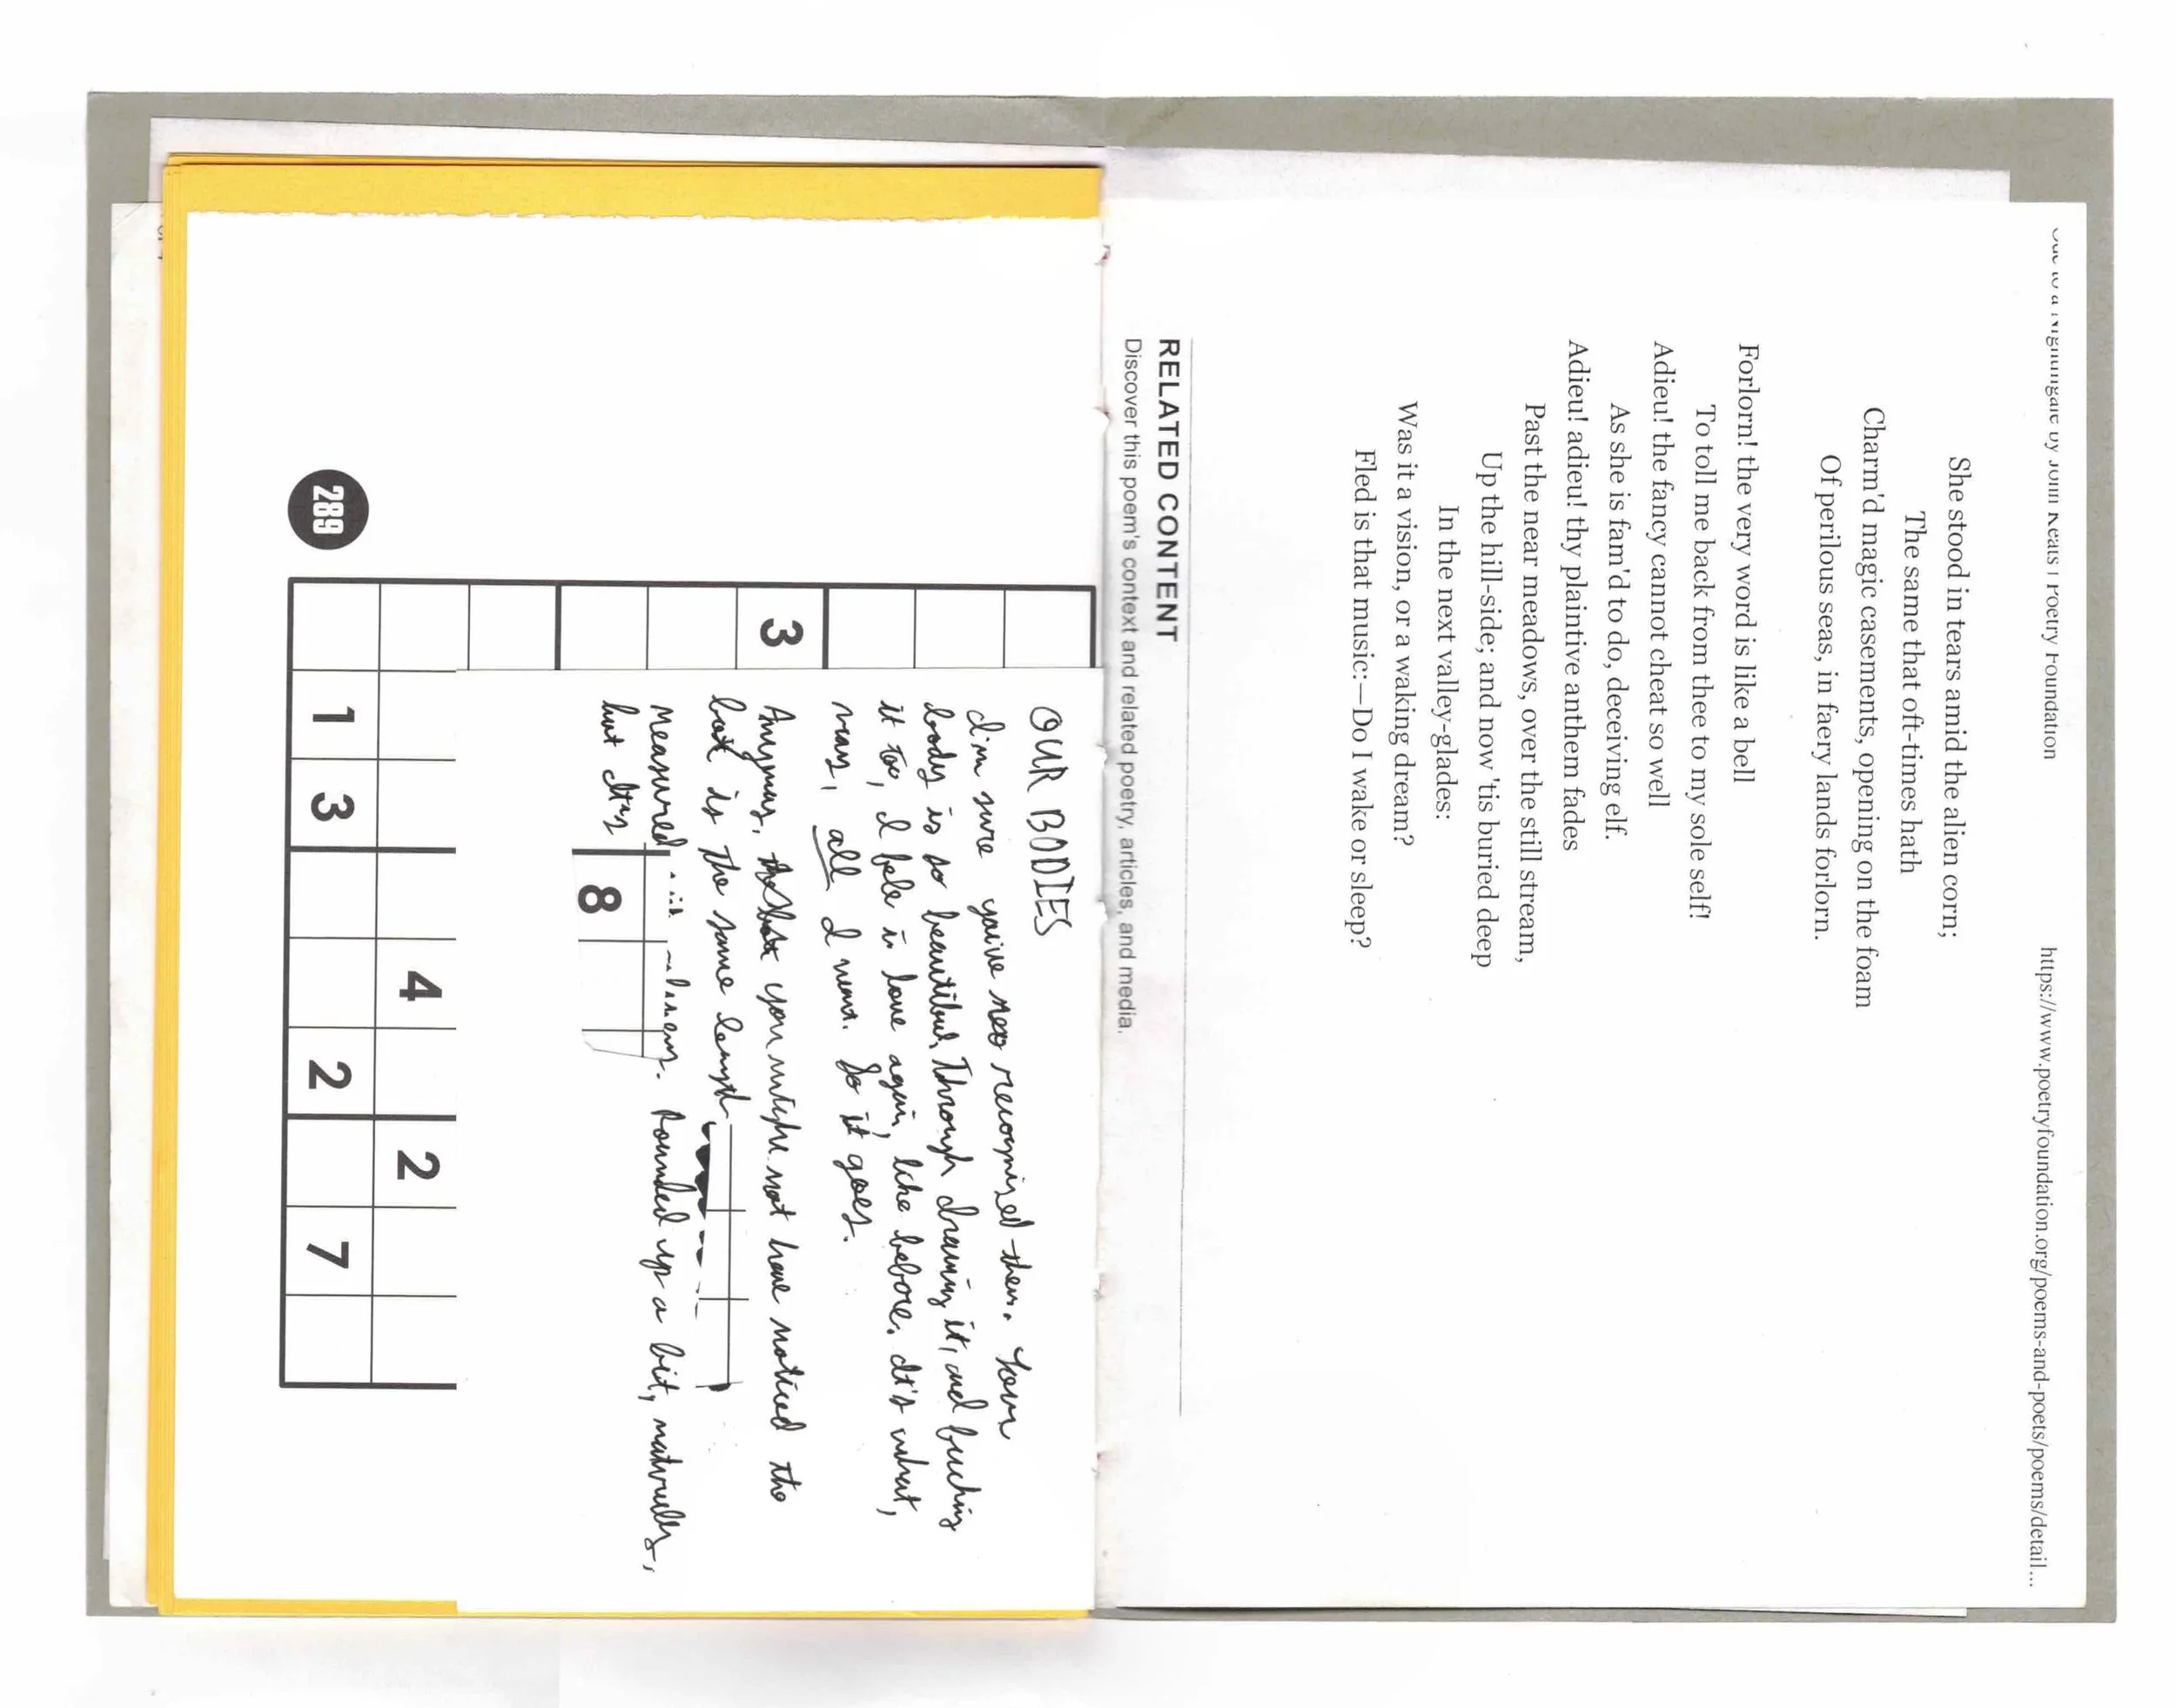 Ode to a Nightingale by John Keats | Poetry Foundation
https://www.poetryfoundation.org/poems-and-poets/poems/detail...
She stood in tears amid the alien corn;
The same that oft-times hath
Charm'd magic casements, opening on the foam
Of perilous seas, in faery lands forlorn.
Forlorn! the very word is like a bell
To toll me back from thee to my sole self!
Adieu! the fancy cannot cheat so well
As she is fam'd to do, deceiving elf.
Adieu! adieu! thy plaintive anthem fades
Past the near meadows, over the still stream,
Up the hill-side; and now 'tis buried deep
In the next valley-glades:
Was it a vision, or a waking dream?
Fled is that music:—Do I wake or sleep?
RELATED CONTENT
Discover this poem's context and related poetry, articles, and media.
OUR BODIES
I'm sure you've recognized them. Your
body is so beautiful. Through drawing it, and
it too, I fall in love again, like before. It's what,
way, all I want. So it goes.
Anyway, you might not have noticed the
is the same length
Measured. Rounded up a bit, naturally,
but
3
8
4
2
1
3
2
7
289